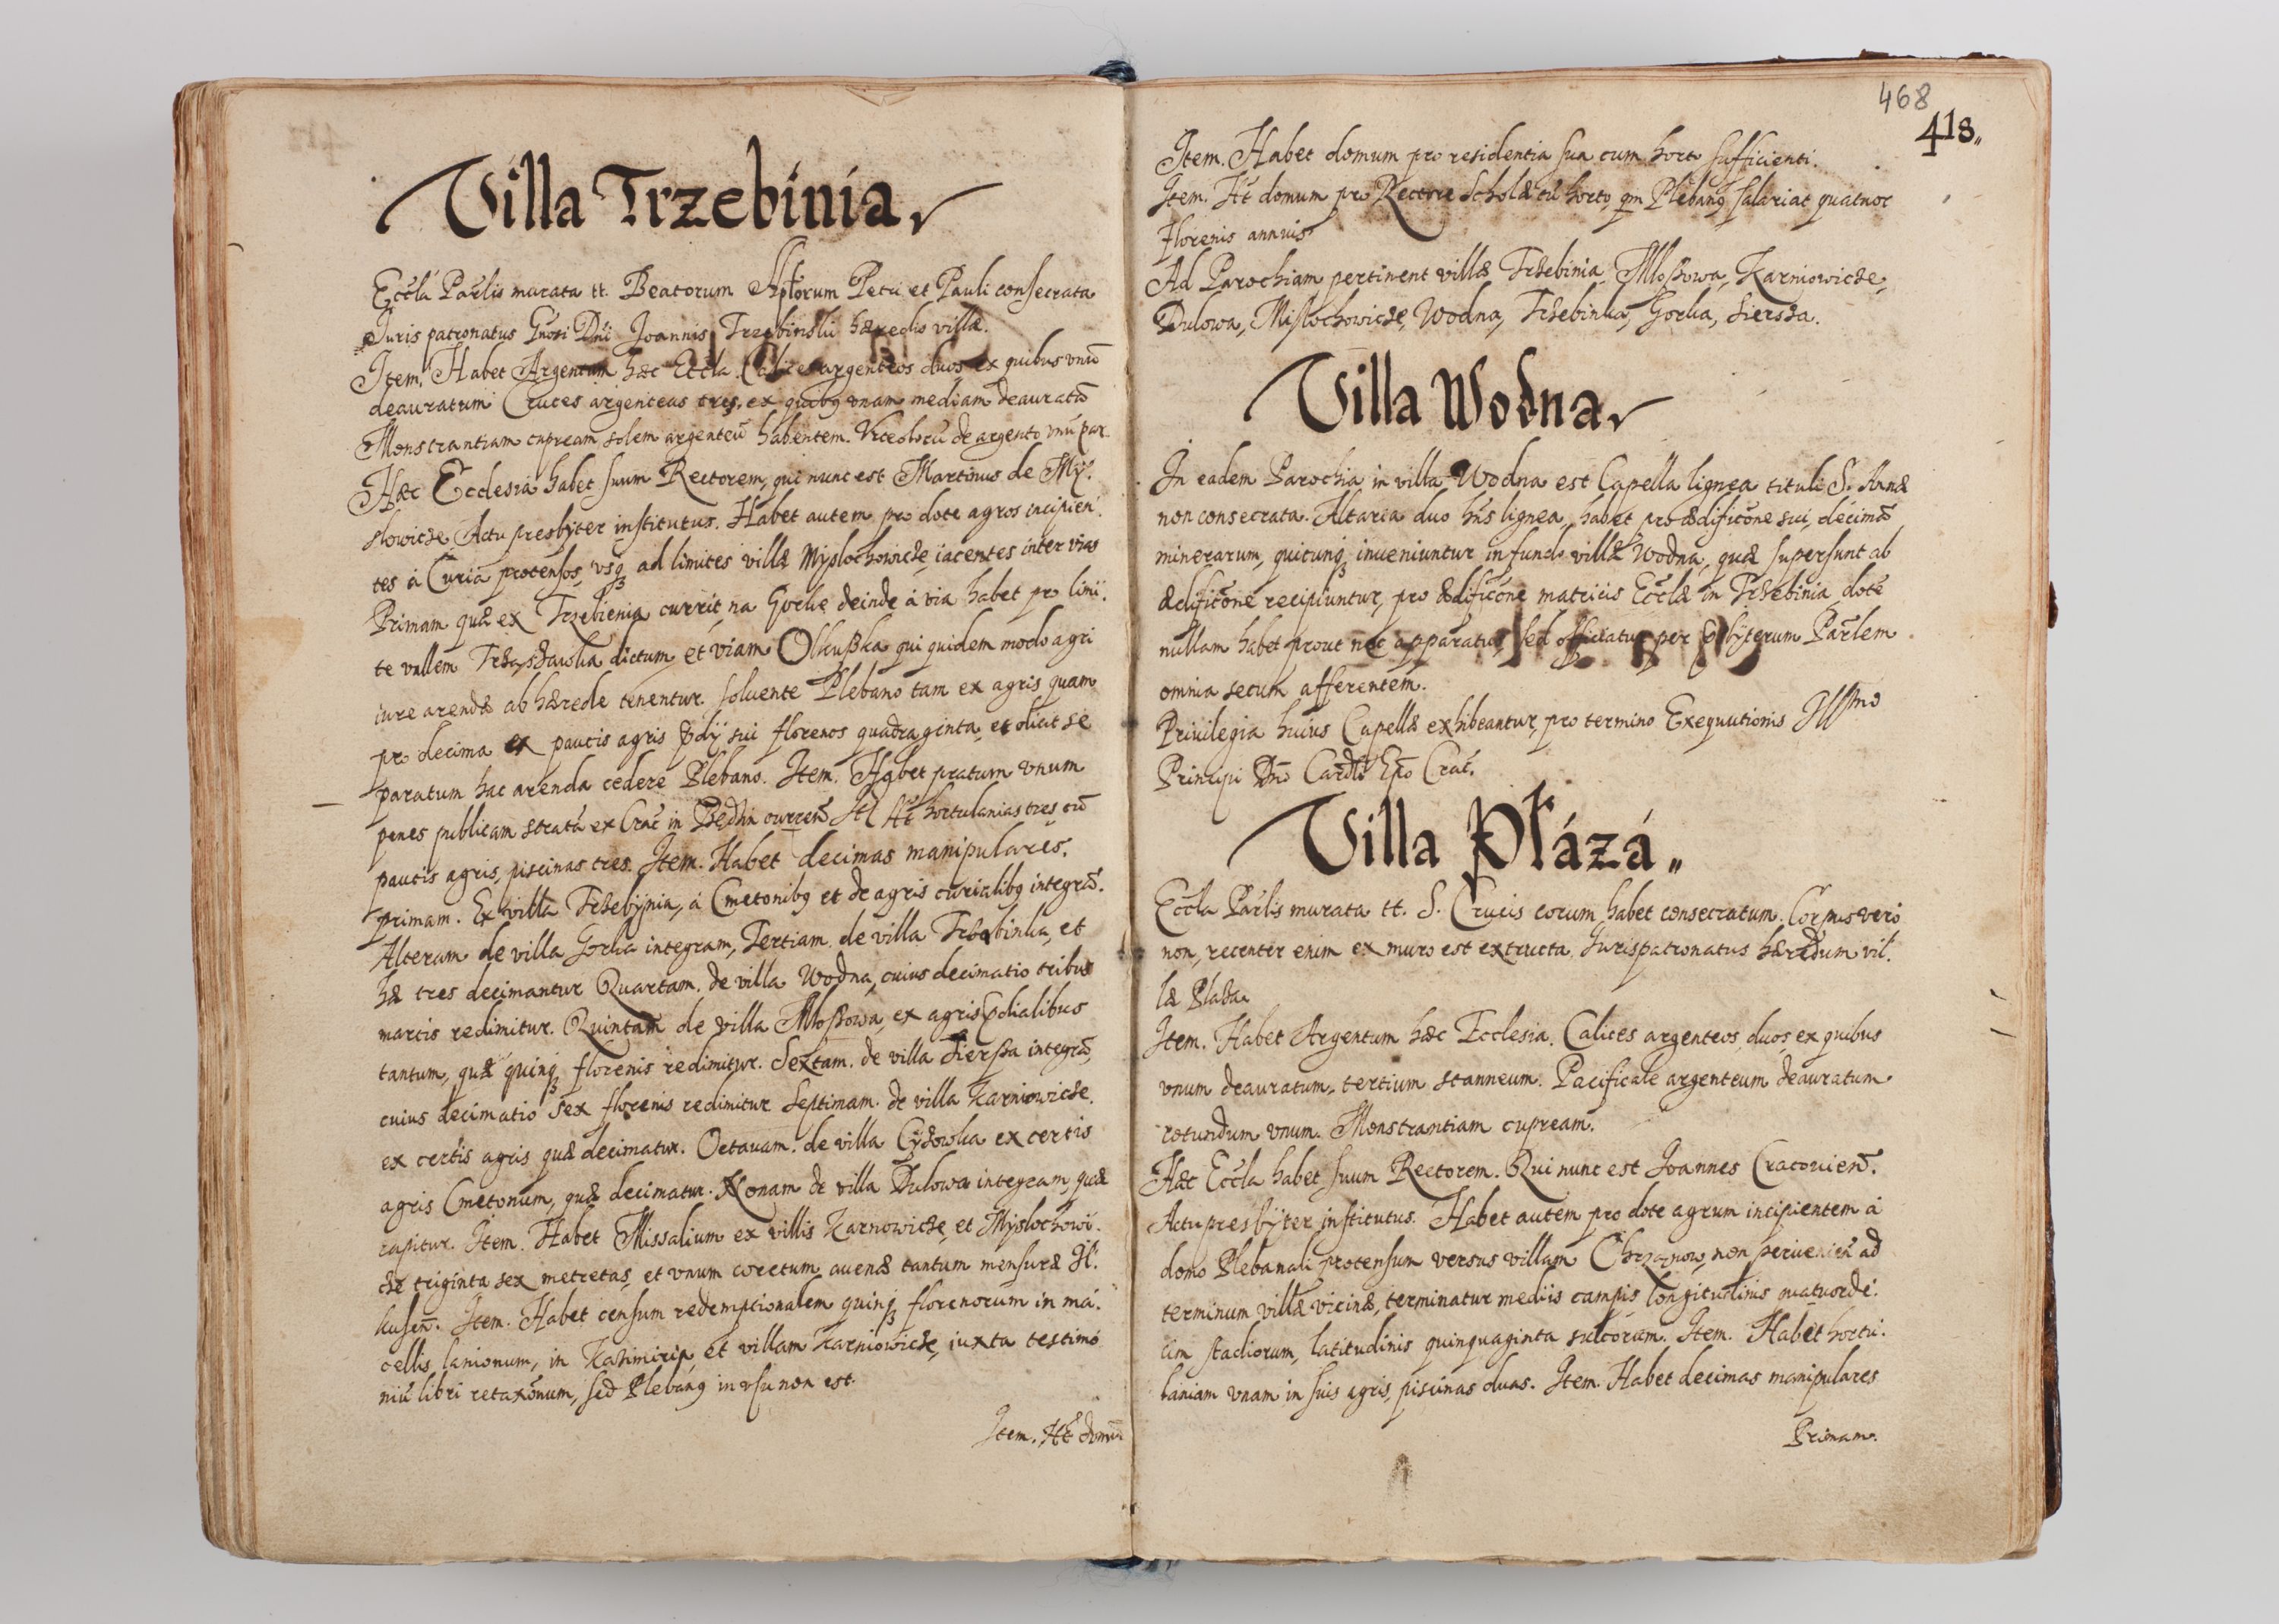 Villa Trzebinia
Eccła Parlis murata tt. Beatorum Aptorum Petri et Pauli consecrata
Juris patronatus Gnosi Dni Joannis Trzebinskii hæredis villæ.
Item. Habet Argentum hæc Eccła. Calices argenteos duos, ex quibus vnũ
deauratum Cruces argenteas tres, ex quibg vnam mediam deauratã
Monstrantiam cupream solem argenteũ habentem. de argento vnũ par
Hæc Ecclesia habet suum Rectorem, qui nunc est Martinus de My-
slowicze Actu presbyter institutus. Habet autem pro dote agros incipien-
tes à Curia protensos, vsqȝ ad limites villæ Myslochowicze iacentes inter vias
Primam quæ ex Trzebienia currit na Gorkę deinde à via habet pro limi-
te vallem dictum et viam Olkußka qui quidem modo agri
iure arendæ ab hærede tenentur. soluente Plebano tam ex agris quam
pro decima ex paucis agris pdij sui florenos quadraginta, et dicit se
paratum hac arenda cedere Plebano. Item. Habet pratum vnum
penes publicam stratã ex Crac̃ in currẽ Itẽ Ht̃ hortulanias tres cũ
paucis agris, piscinas tres. Item. Habet decimas manipulares.
primam. Ex villa Trzebÿnia, à Cmetonibg et de agris curialibg integrã.
Alteram de villa Gorka integram, Tertiam. de villa Trzebinka, et
hæ tres decimantur Quartam. de villa Wodna, cuius decimatio tribus
marcis redimitur. Quintam de villa Mloßowa, ex agris pdialibus
tantum, quæ quinqȝ florenis redimitur. Sextam. de villa Sierßa integrã,
cuius decimatio sex florenis redimitur Septimam. de villa Karniowicze.
ex certis agris quæ decimatur. Octauam. de villa Cÿzowka ex certis
agris Cmetonum, quæ decimatur. Nonam de villa Dulowa integram, quæ
capitur. Item. Habet Missalium ex villis Karnowicze, et Myslochowi-
cze triginta sex metretas, et vnum coretum auenæ tantum mensuræ Jl-
kusen̄. Item. Habet censum redemptionalem quinqȝ florenorum in ma-
cellis lanionum, in Kazimiria, et villam Karniowicze, iuxta testimo
niũ libri retaxōnum, sed Plebang in vsu non est.
Item. Ht̃ domũ
468
418
Item. Habet domum pro residentia sua cum horto sufficienti.
Item. Ht̃ domum pro Rectore Scholæ cũ horto, qm̃ Plebang salariat quatuor
florenis annuis.
Ad Parochiam pertinent villæ Trzebinia, Mloßowa, Karniowicze,
Dulowa, Mislochowicze, Wodna, Trzebinka, Gorka, Siersza.
Villa Wodna
In eadem Parochia in villa Wodna est Capella lignea tituli S. Annæ
non consecrata. Altaria duo hns lignea, habet pro ædificōne sui, decimã
minerarum, quicunqȝ inueniuntur in fundo villæ Wodna, quæ supersunt ab
ædificōne recipiuntur, pro ædificōne matricis Eccłæ in Trzebinia, dotẽ
nullam habet prout nec apparatus, sed officiatur per Pbÿterum Parlem
omnia secum afferentem.
Priuilegia huius Capellæ exhibeantur, pro termino Exequutionis Illmo
Principi Dno Cardli Epo Crac̃.
Villa Płázá
Eccła Parlis murata tt. S. Crucis corum habet consecratum. Corpus vero
non, recenter enim ex muro est extructa, Jurispatronatus hæredum vil-
læ Plaza.
Item. Habet Argentum hæc Ecclesia. Calices argenteos, duos, ex quibus
vnum deauratum, tertium stanneum. Pacificale argenteum deauratum
rotundum vnum. Monstrantiam cupream.
Hæc Eccła habet suum Rectorem. Qui nunc est Joannes Cracouien̄.
Actu presbÿter institutus. Habet autem pro dote agrum incipientem à
domo Plebanali protensum versus villam Chrzanow, non peruenien̄ ad
terminum villæ vicinæ, terminatur mediis campis longitudinis quatuorde-
cim stadiorum, latitudinis quinquaginta sulcorum. Item. Habet hortu-
laniam vnam in suis agris, piscinas duas. Item. Habet decimas manipulares
Primam.